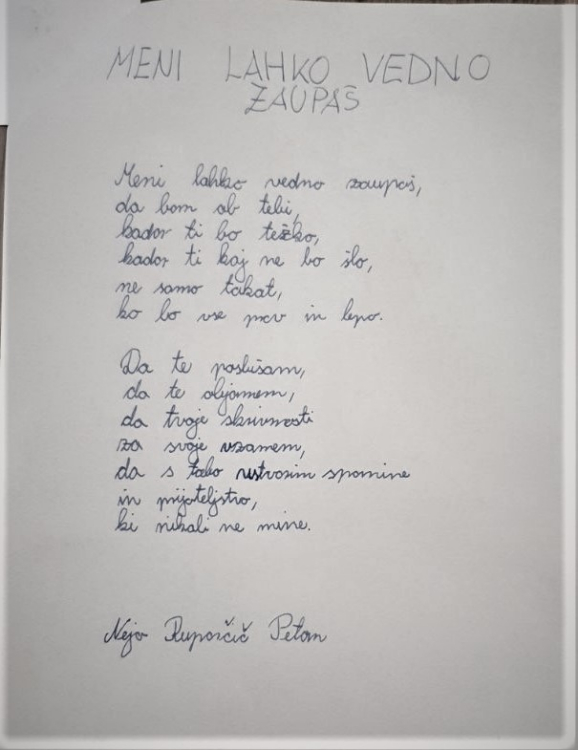 MENI LAHKO VEDNO
ZAUPAŠ
Meni lahko vedno zaupaš,
da bom ob tebi,
kadar ti bo težko,
kadar ti kaj ne bo šlo,
ne samo takat,
ko bo vse prav in lepo.
Da te poslušam,
da te objamem,
da tvoje skrivnosti
za svoje vzamem,
da s tabo ustvarim spomine
in prijateljstvo,
ki nikali ne mine.
Neja Petan